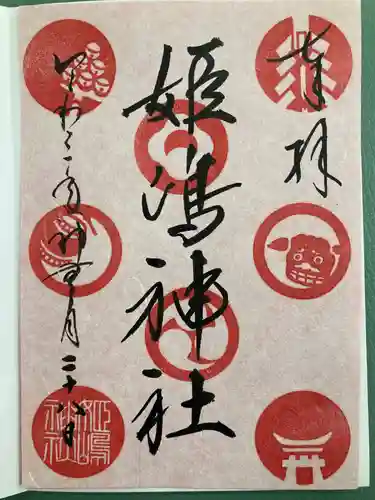 奉拝
姫嶋神社
令和二年神無月二十八日
姫嶋
神社